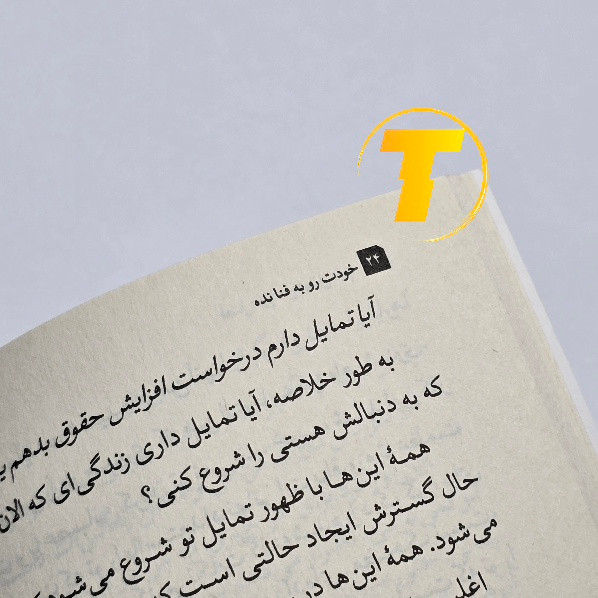 T
۲۴ خودت رو به فنا نده
آیا تمایل دارم درخواست افزایش حقوق بدهم
به طور خلاصه، آیا تمایل داری زندگی‌ای که الان
که به دنبالش هستی را شروع کنی؟
همهٔ این‌ها با ظهور تمایل تو شروع می‌شود
حال گسترش ایجاد حالتی است که
می‌شود. همهٔ این‌ها در